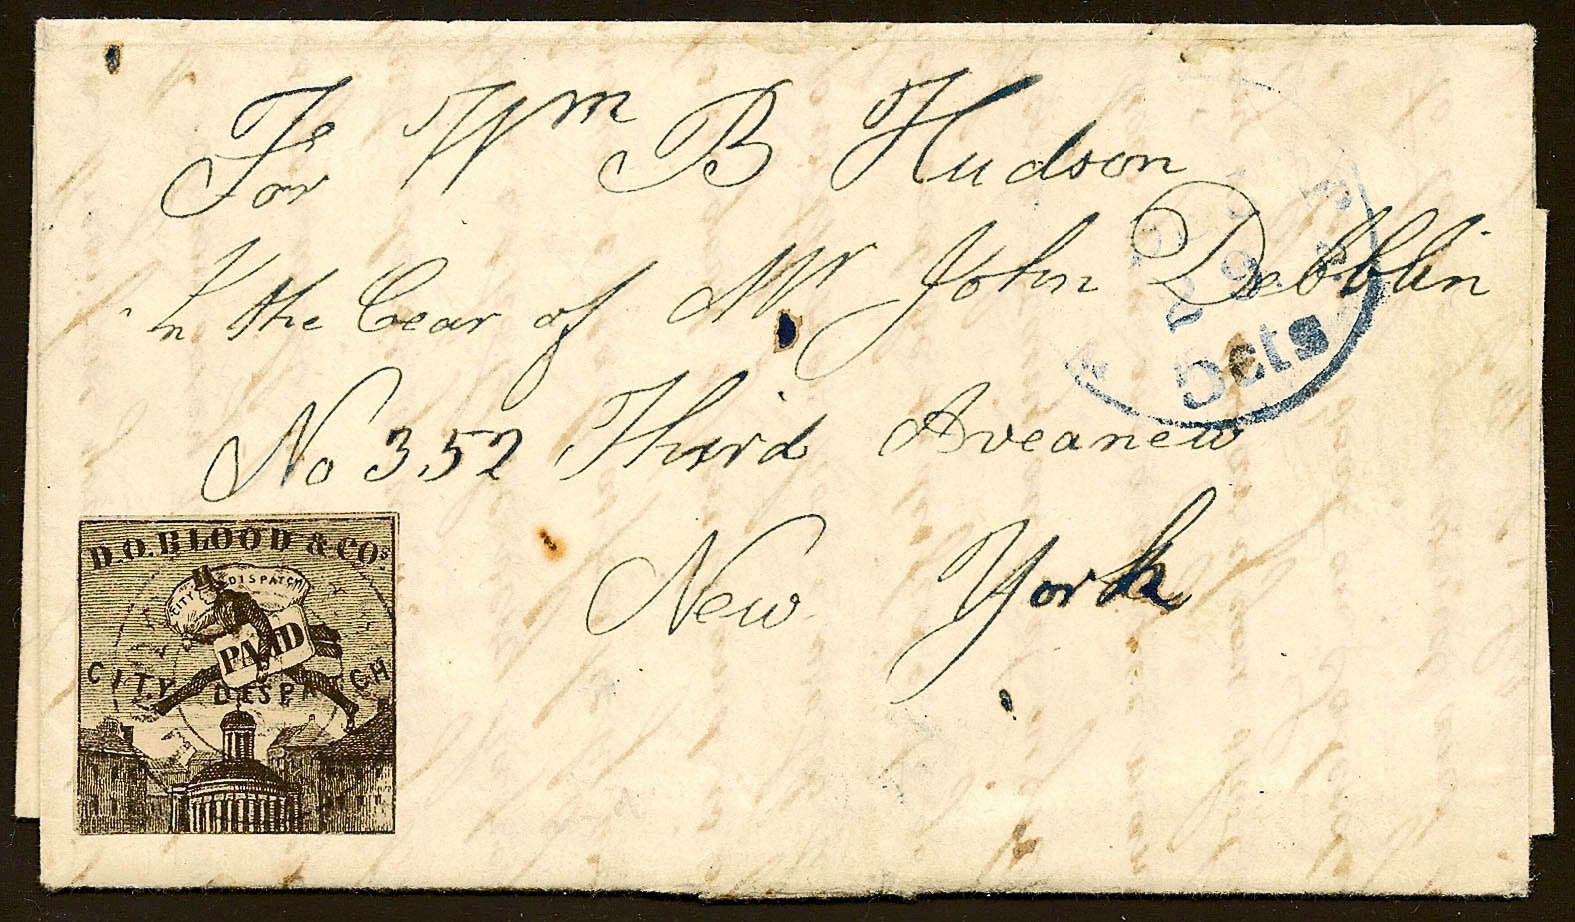 For Wm B Hudson
In the Cear of Mr John Debblin
No 352 Third Aveanew
New York
5cts
D.O. BLOOD & COs.
CITY DISPATCH
PAID
CITY DESPATCH